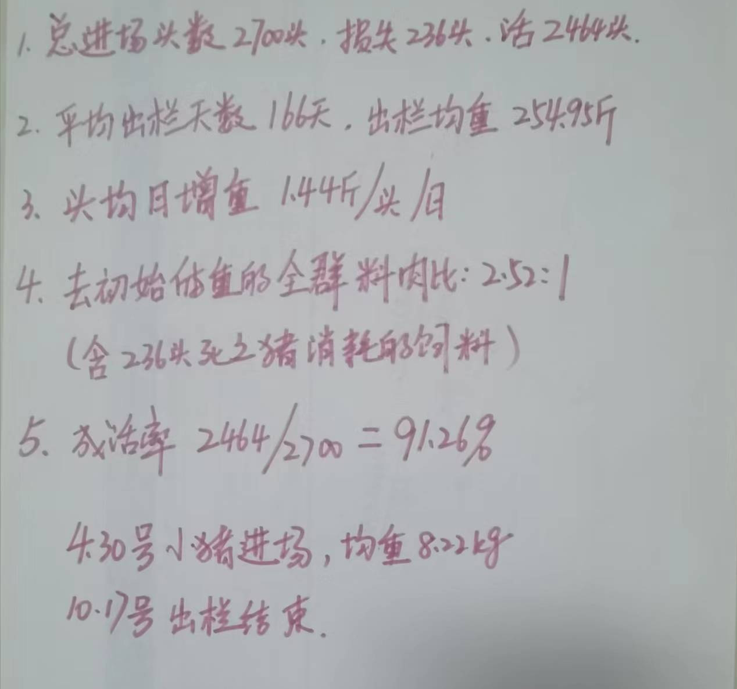 1. 总进场头数2700头.损失236头.活2464头.
2. 平均出栏天数166天.出栏均重254.95斤
3. 头均日增重 1.44斤/头/日
4. 去初始体重的全群料肉比:2.52:1
(含236头死亡猪消耗的饲料)
5. 成活率 2464/2700=91.26%
4.30号小猪进场,均重8.22kg
10.17号出栏结束.